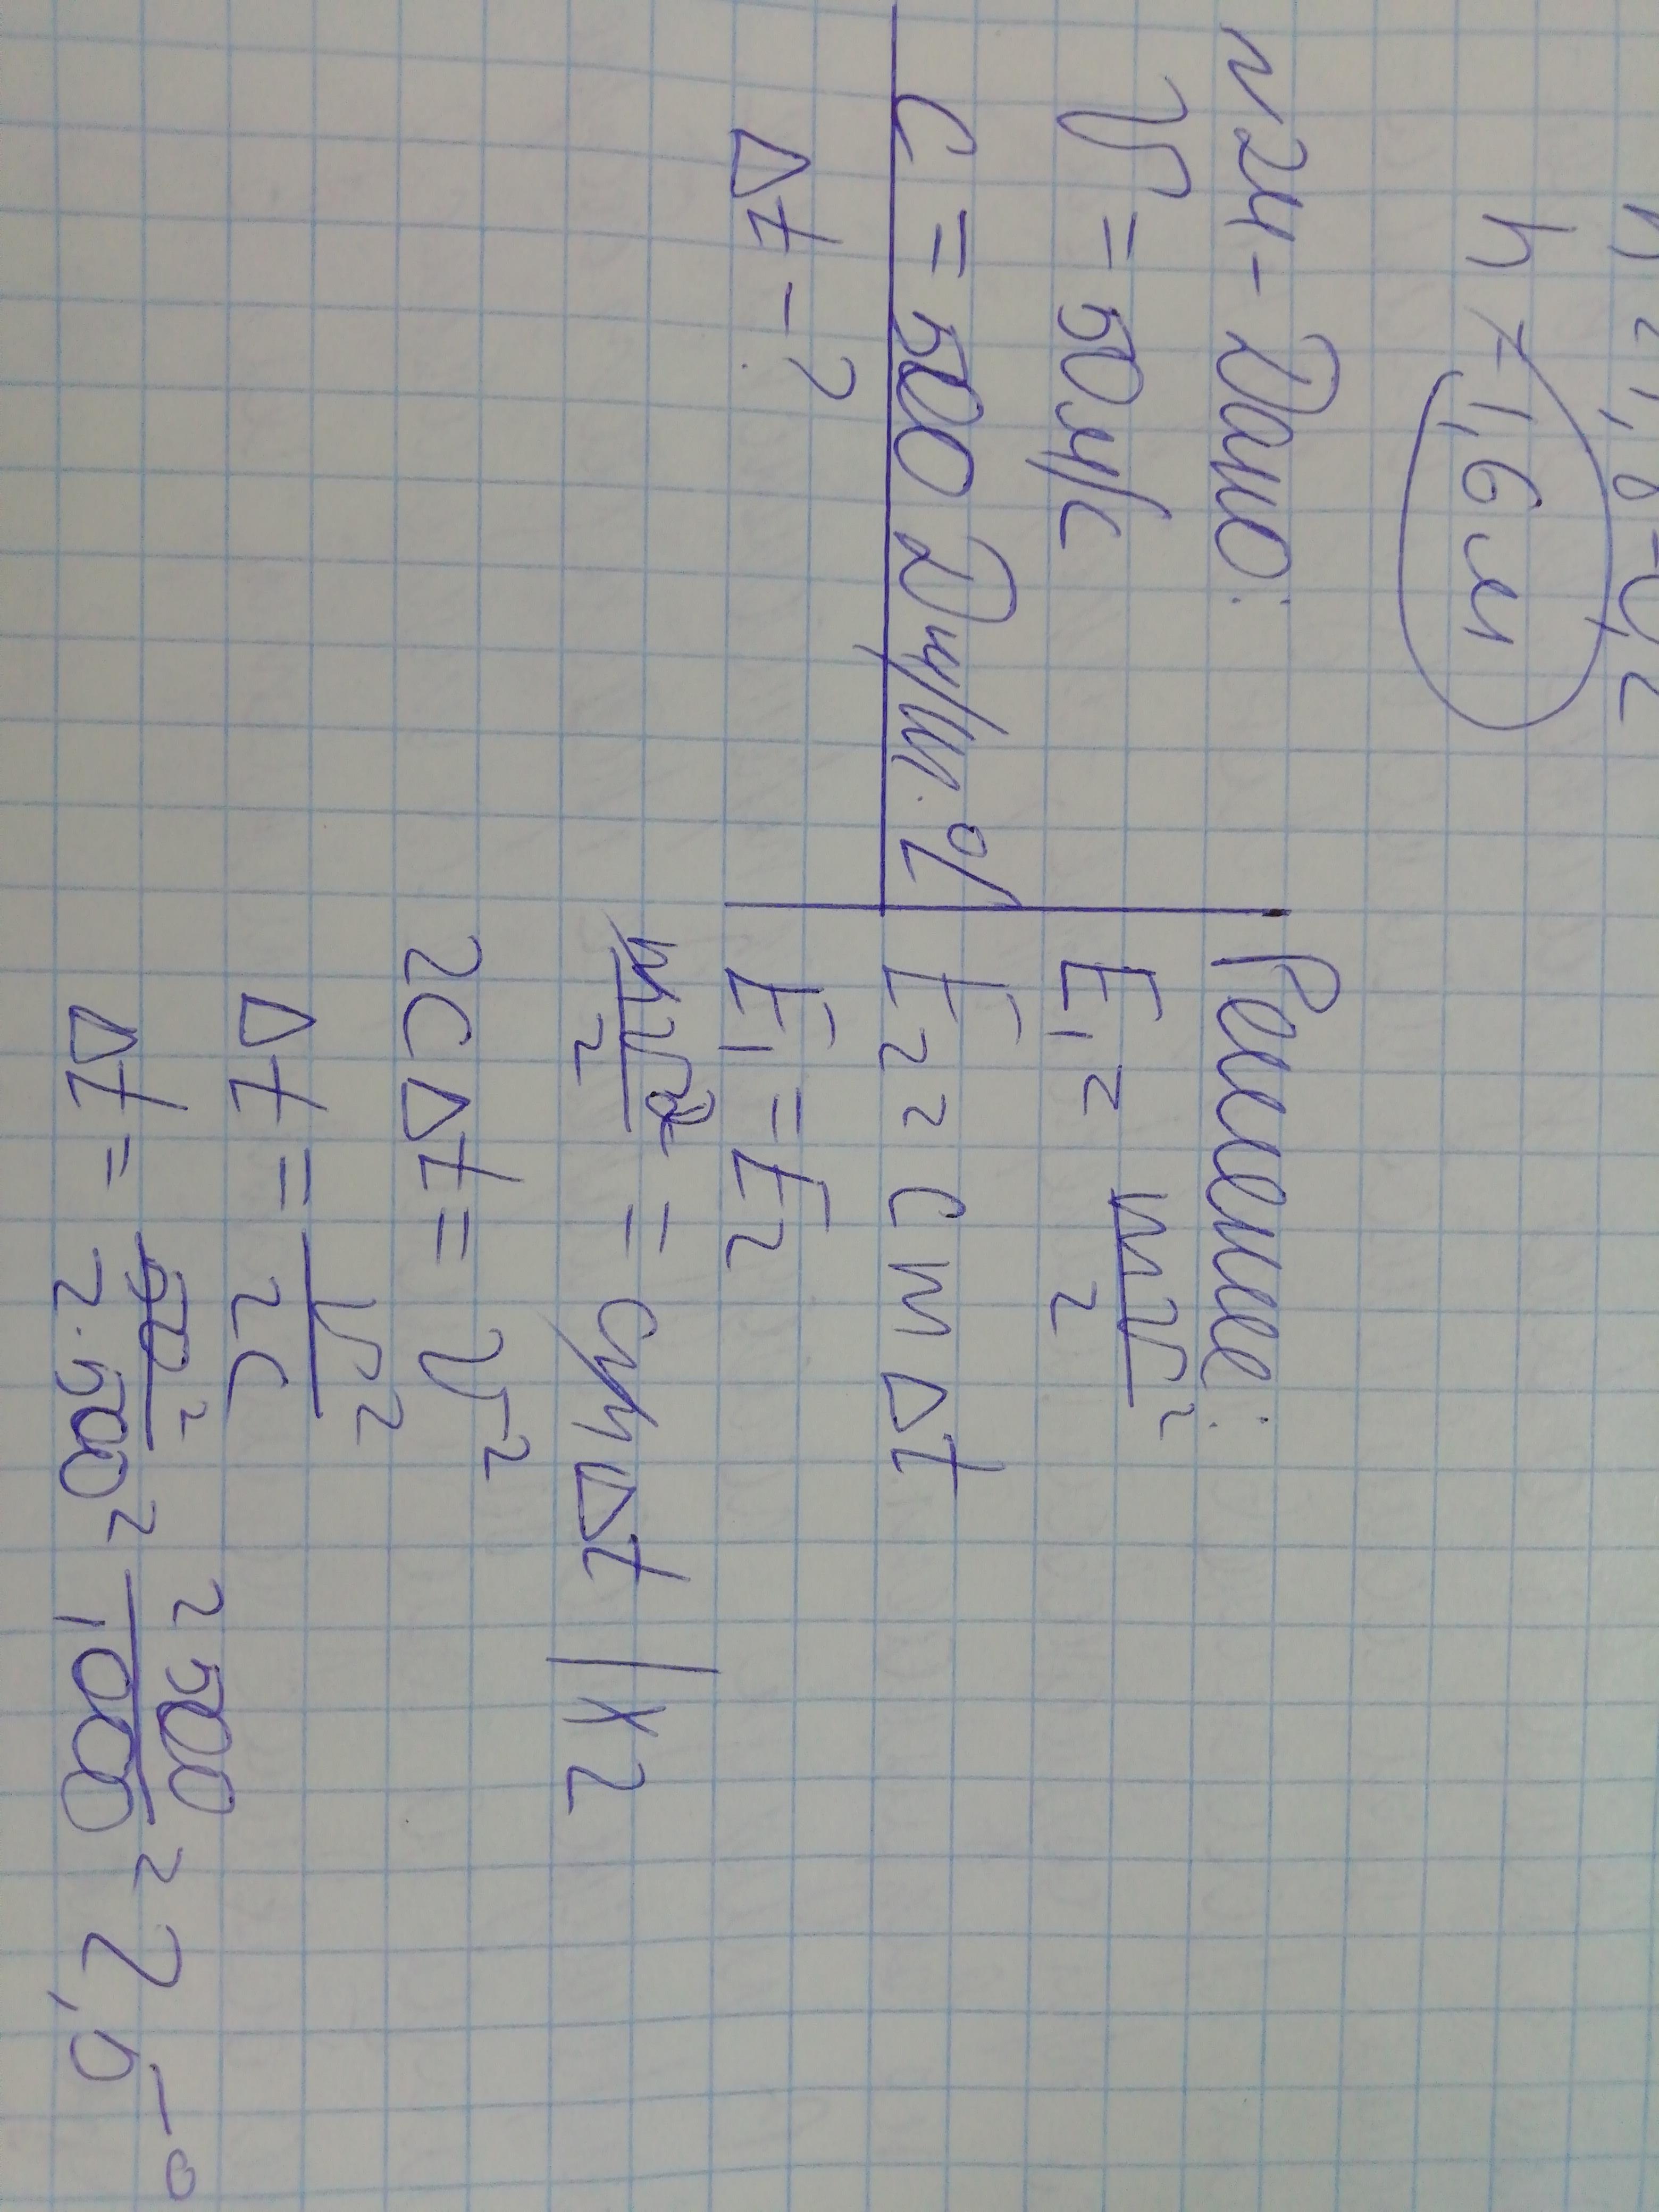 h = 1,6 м
N24 - Дано:
V = 50 м/с
C = 500 Дж/кг·°C
Δt - ?
Решение:
E₁ = mV²/2
E₂ = cmΔt
E₁ = E₂
mV²/2 = cmΔt | x2
2CΔt = V²
Δt = V²/2C
Δt = 50²/2·500 = 2500/1000 = 2,5°